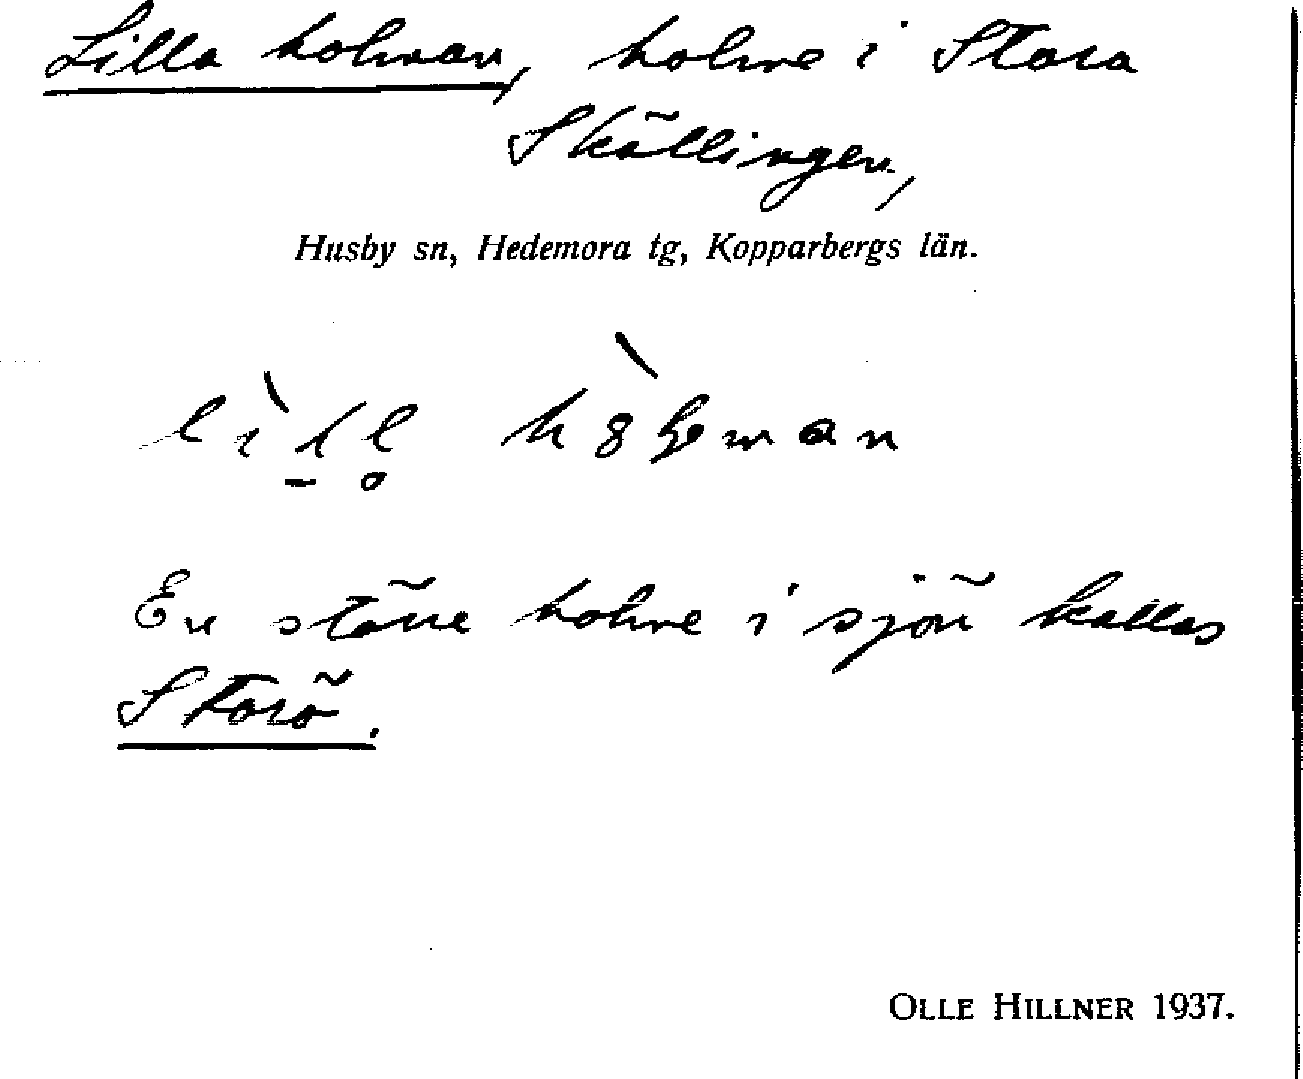 Lilla holman, holme i Stora
Skällingen,
Husby sn, Hedemora tg, Kopparbergs län.
En större holme i sjön kallas
Storö.
OLLE HILLNER 1937.